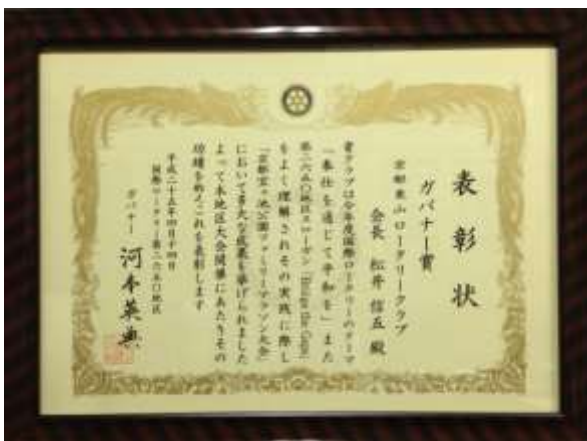 表彰状
ガバナー賞
京都東山ロータリークラブ
会長 松井信五 殿
貴クラブは今年度国際ロータリーのテーマ
「奉仕を通じて平和を」また
第二六五〇地区スローガン「Bridge the Gaps」
をよく理解されその実践に際し
「京都宝ヶ池公園ファミリーマラソン大会」
において多大な成果を挙げられました
よって本地区大会開催にあたりその
功績を称えこれを表彰します
平成二十五年四月十四日
国際ロータリー第二六五〇地区
ガバナー 河本英典